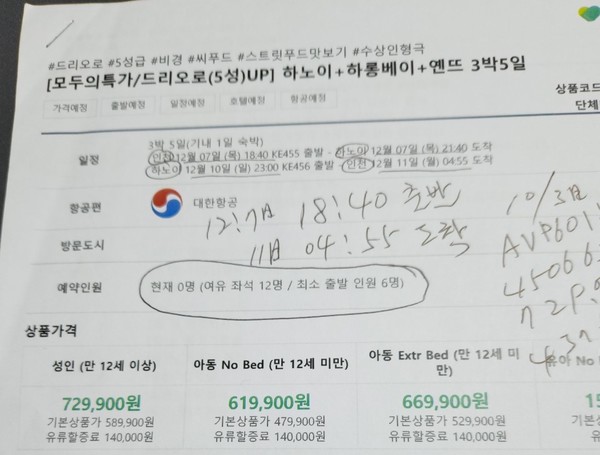 #드리오로 #5성급 #비경 #씨푸드 #스트릿푸드맛보기 #수상인형극
[모두의특가/드리오로(5성)UP] 하노이+하롱베이+옌뜨 3박5일
가격예정 출발예정 일정예정 호텔예정 항공예정
상품코드
단체
일정
3박 5일(기내 1일 숙박)
인천 12월 07일 (목) 18:40 KE455 출발 - 하노이 12월 07일 (목) 21:40 도착
하노이 12월 10일 (일) 23:00 KE456 출발 - 인천 12월 11일 (월) 04:55 도착
항공편
대한항공
12:7일 18:40 출발
11일 04:55 도착
10/3일
AVP601
45066
72P.
437
방문도시
예약인원
현재 0명 (여유 좌석 12명 / 최소 출발 인원 6명)
상품가격
성인 (만 12세 이상) 아동 No Bed (만 12세 미만) 아동 Extr Bed (만 12세 미만) 유아 No
729,900원 619,900원 669,900원 15
기본상품가 589,900원 기본상품가 479,900원 기본상품가 529,900원
유류할증료 140,000원 유류할증료 140,000원 유류할증료 140,000원